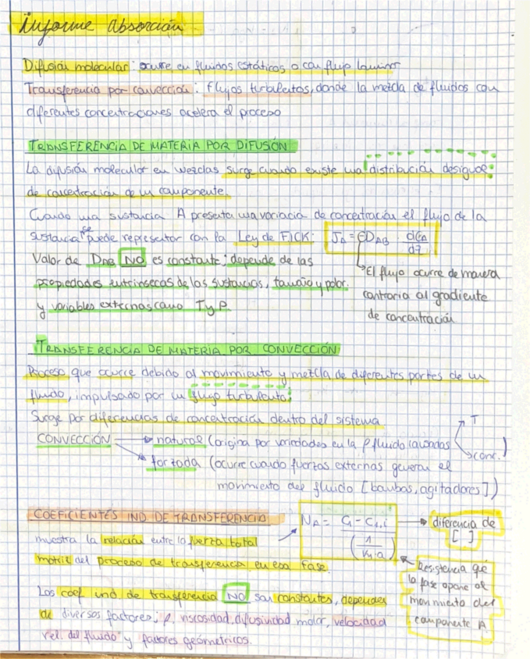 Informe absorción
Difusión molecular: ocurre en fluidos estáticos o con flujo laminar
Transferencia por convección: flujos turbulentos, donde la mezcla de fluidos con
diferentes concentraciones acelera el proceso
TRANSFERENCIA DE MATERIA POR DIFUSIÓN
La difusión molecular en mezclas surge cuando existe una distribución desigual
de concentración de un componente.
Cuando una sustancia A presenta una variación de concentración el flujo de la
sustancia se puede representar con la Ley de FICK: JA = -DAB dCA/dz
Valor de DAB NO es constante: depende de las
propiedades intrínsecas de las sustancias, tamaño y polar.
y variables externas como T y P
El flujo ocurre de manera
contraria al gradiente
de concentración
TRANSFERENCIA DE MATERIA POR CONVECCIÓN
Proceso que ocurre debido al movimiento y mezcla de diferentes partes de un
fluido, impulsado por un flujo turbulento.
Surge por diferencias de concentración dentro del sistema
CONVECCIÓN natural (origina por variedades en la ρ fluido causadas T conc.)
forzada (ocurre cuando fuerzas externas generan el
movimiento del fluido [bombas, agitadores])
COEFICIENTES IND DE TRANSFERENCIA
muestra la relación entre la fuerza total
motriz del proceso de transferencia en esa fase.
diferencia de
[ ]
Resistencia que
la fase opone al
movimiento del
componente A
Los coef ind de transferencia NO son constantes, dependen
de diversos factores: ρ, viscosidad, difusividad molar, velocidad
rel. del fluido y factores geométricos.